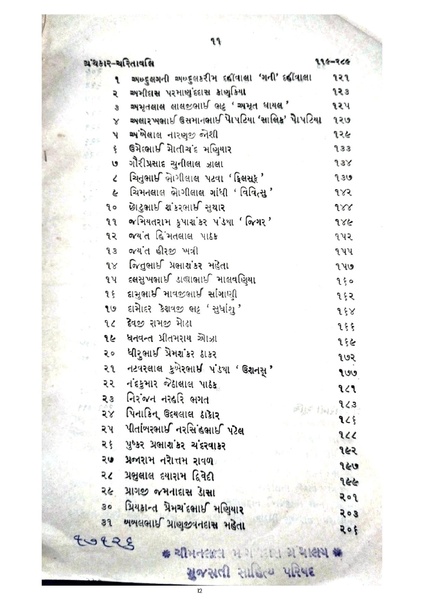 ૧૧
ગ્રંથકાર-ચરિતાવલિ ૧૧૯-૨૮૯
૧ અબ્દુલગની અબ્દુલકરીમ દહીંવાલા 'ગની' દહીંવાલા ૧૨૧
૨ અમીદાસ પરમાણંદદાસ કાણકિયા ૧૨૩
૩ અમૃતલાલ લાલજીભાઈ ભટ્ટ 'અમૃત ઘાયલ' ૧૨૫
૪ અલારખભાઈ ઉસમાનભાઈ પોપટિયા 'સાલિક' પોપટિયા ૧૨૭
૫ અંબેલાલ નારણજી જોશી ૧૨૯
૬ ઉમેદભાઈ મોતીચંદ મણિયાર ૧૩૩
૭ ગૌરીપ્રસાદ ચુનીલાલ ઝાલા ૧૩૪
૮ ચિનુભાઈ ભોગીલાલ પટવા 'ફિલસૂફ' ૧૩૭
૯ ચિમનલાલ ભોગીલાલ ગાંધી 'વિવિત્સુ' ૧૪૨
૧૦ છોટુભાઈ શંકરભાઈ સુથાર ૧૪૪
૧૧ જમિયતરામ કૃપાશંકર પંડયા 'જિગર' ૧૪૯
૧૨ જયંત હિંમતલાલ પાઠક ૧૫૨
૧૩ જયંત હીરજી ખત્રી ૧૫૫
૧૪ જિતુભાઈ પ્રભાશંકર મહેતા ૧૫૭
૧૫ દલસુખભાઈ ડાહ્યાભાઈ માલવણિયા ૧૬૦
૧૬ દામુભાઈ માવજીભાઈ સાંગાણી ૧૬૨
૧૭ દામોદર કેશવજી ભટ્ટ 'સુધાંશુ' ૧૬૪
૧૮ દેવજી રામજી મોઢા ૧૬૬
૧૯ ધનવન્ત પ્રીતમરાય ઓઝા ૧૬૯
૨૦ ધીરુભાઈ પ્રેમશંકર ઠાકર ૧૭૨
૨૧ નટવરલાલ કુબેરભાઈ પંડયા 'ઉશનસ્' ૧૭૭
૨૨ નંદકુમાર જેઠાલાલ પાઠક ૧૮૧
૨૩ નિરંજન નરહરિ ભગત ૧૮૩
૨૪ પિનાકિન્ ઉદયલાલ ઠાકોર ૧૮૬
૨૫ પીતાંબરભાઈ નરસિંહભાઈ પટેલ ૧૮૮
૨૬ પુષ્કર પ્રભાશંકર ચંદરવાકર ૧૯૨
૨૭ પ્રજારામ નરોત્તમ રાવળ ૧૯૭
૨૮ પ્રભુલાલ દયારામ દ્વિવેદી ૧૯૯
૨૯ પ્રાગજી જમનાદાસ ડોસા ૨૦૧
૩૦ પ્રિયકાન્ત પ્રેમચંદભાઈ મણિયાર ૨૦૩
૩૧ બબલભાઈ પ્રાણજીવનદાસ મહેતા ૨૦૬
૧૭૧૨૬
ચીમનલાલ મંગળદાસ ગ્રંથાલય
ગુજરાતી સાહિત્ય પરિષદ
12